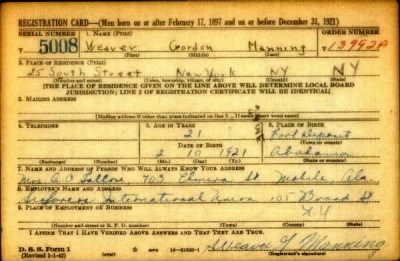 REGISTRATION CARD—(Men born on or after February 17, 1897 and on or before December 31, 1921)
SERIAL NUMBER 1. NAME (Print) ORDER NUMBER
T 5008 Weaver Gordon Manning 13992A
(First) (Middle) (Last)
2. PLACE OF RESIDENCE (Print)
25 South Street New York NY NY
(Number and street) (Town, township, village, or city) (County) (State)
[THE PLACE OF RESIDENCE GIVEN ON THE LINE ABOVE WILL DETERMINE LOCAL BOARD
JURISDICTION; LINE 2 OF REGISTRATION CERTIFICATE WILL BE IDENTICAL]
3. MAILING ADDRESS
[Mailing address if other than place indicated on line 2. If same insert word same]
4. TELEPHONE 5. AGE IN YEARS 6. PLACE OF BIRTH
21
DATE OF BIRTH (Town or county)
2 10 1921 Alabama
(Exchange) (Number) (Mo.) (Day) (Yr.) (State or country)
7. NAME AND ADDRESS OF PERSON WHO WILL ALWAYS KNOW YOUR ADDRESS
Mrs 903 Elmira St Mobile Ala
8. EMPLOYER'S NAME AND ADDRESS
Seafarers International Union 105 Broad St
9. PLACE OF EMPLOYMENT OR BUSINESS
NY
(Number and street or R. F. D. number) (Town) (County) (State)
I AFFIRM THAT I HAVE VERIFIED ABOVE ANSWERS AND THAT THEY ARE TRUE.
D. S. S. Form 1
(Revised 1-1-42) 16—21630-1 Weaver G Manning
(Registrant's signature)